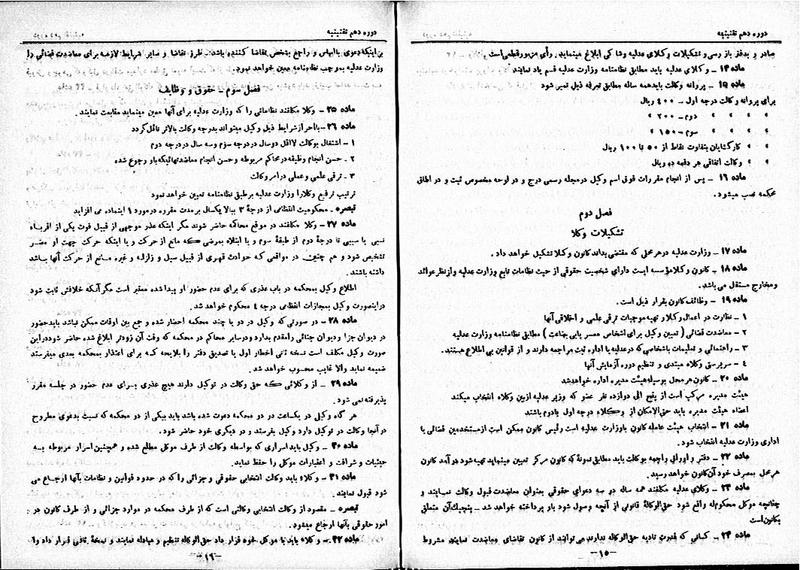 دوره دهم تقنینیه
صادر و بدفتر بازرسی و تشکیلات وکلای عدلیه وشاکی ابلاغ مینماید. رأی مزبور قطعی است.
ماده ۱۴ ـ وکلای عدلیه باید مطابق نظامنامه وزارت عدلیه قسم یاد نمایند
ماده ۱۵ ـ پروانه وکالت باید همه ساله مطابق تعرفه ذیل تمبر شود
برای پروانه وکالت درجه اول ـ ۴۰۰ ریال
» » » دوم ـ ۲۰۰ »
» » » سوم ـ ۱۵۰ »
» » کارگشایان بتفاوت نقاط از ۵۰ تا ۱۰۰ ریال
» » وکالت اتفاقی هر دفعه ده ریال
ماده ۱۶ ـ پس از انجام مقررات فوق اسم وکیل در مجله رسمی درج و در لوحه مخصوص ثبت و در اطاق
محکمه نصب میشود.
فصل دوم
تشکیلات وکلا
ماده ۱۷ ـ وزارت عدلیه در هر محل که مقتضی بداند کانون وکلا تشکیل خواهد داد.
ماده ۱۸ ـ کانون وکلا مؤسسه ایست دارای شخصیت حقوقی از حیث نظامات تابع وزارت عدلیه و از نظر عوائد
ومخارج مستقل می باشد.
ماده ۱۹ ـ وظائف کانون بقرار ذیل است.
۱ ـ نظارت در اعمال وکلا و تهیه موجبات ترقی علمی و اخلاقی آنها
۲ ـ معاضدت قضائی (تعیین وکیل برای اشخاص معسر یا بی بضاعت) مطابق نظامنامه وزارت عدلیه
۳ ـ راهنمائی و تعلیمات باشخاصی که در عدلیه یا اداره ثبت مراجعه دارند و از قوانین بی اطلاع هستند.
۴ ـ سرپرستی وکلاء مبتدی و تنظیم دوره آزمایش آنها
ماده ۲۰ ـ کانون هر محل بوسیله هیئت مدیره اداره خواهد شد
هیئت مدیره مرکب است از پنج الی دوازده نفر عضو که وزیر عدلیه از بین وکلاء انتخاب میکند
اعضاء هیئت مدیره باید حتی الامکان از وکلاء درجه اول یا دوم باشند
ماده ۲۱ ـ انتخاب هیئت عامله کانون با وزارت عدلیه است رئیس کانون ممکن است از مستخدمین قضائی یا
اداری وزارت عدلیه انتخاب شود.
ماده ۲۲ ـ دفتر و اوراق راجعه بوکالت باید مطابق نمونۀ که کانون مرکز تعیین مینماید تهیه شود درآمد کانون
هر محل بمصرف خود آن کانون خواهد رسید.
ماده ۲۳ ـ وکلاء عدلیه مکلفند همه ساله در سه دعوای حقوقی بعنوان معاضدت قبول وکالت نمایند و
چنانچه موکل محکوم له واقع شود حق الوکالۀ قانونی از آنچه وصول شود باو پرداخته خواهد شد ـ پنج یک آن متعلق
بکانون است
ماده ۲۴ ـ کسانی که قدرت تأدیه حق الوکاله ندارند می توانند از کانون تقاضای معاضدت نمایند مشروط
ـ ۱۵ ـ
دوره دهم تقنینیه
بر اینکه دعوی با اساس و راجع بشخص تقاضا کننده باشد. طرز تقاضا و سایر شرایط لازمه برای معاضدت قضائی را
وزارت عدلیه بموجب نظامنامه معین خواهد نمود.
فصل سوم ـ حقوق و وظایف
ماده ۲۵ ـ وکلا مکلفند نظاماتی را که وزارت عدلیه برای آنها معین مینماید متابعت نمایند.
ماده ۲۶ ـ با احراز شرایط ذیل وکیل میتواند بدرجه وکالت بالاتر نائل گردد
۱ ـ اشتغال بوکالت لااقل دو سال در درجه سوم و سه سال در درجه دوم
۲ ـ حسن انجام وظیفه در محاکم مربوطه و حسن انجام معاضدتهائیکه باو رجوع شده
۳ ـ ترقی علمی و عملی در امر وکالت
ترتیب ترفیع وکلا را وزارت عدلیه بر طبق نظامنامه تعیین خواهد نمود
تبصره ـ محکومیت انتظامی از درجۀ ۳ ببالا یکسال بر مدت مقرره در مورد ۱ اینماده می افزاید
ماده ۲۷ ـ وکلا مکلفند در موقع محاکمه حاضر شوند مگر اینکه عذر موجهی از قبیل فوت یکی از اقرباء
نسبی یا سببی تا درجۀ دوم از طبقۀ سوم و یا ابتلاء بمرضی که مانع از حرکت و یا اینکه حرکت جهت او مضر
تشخیص شود و هم چنین در مواقعی که حوادث قهری از قبیل سیل و زلزله و غیره مانع از حرکت آنها باشد
داشته باشند.
اطلاع وکیل بمحکمه در باب عذری که برای عدم حضور او پیدا شده معتبر است مگر آنکه خلافش ثابت شود
در اینصورت وکیل بمجازات انتظامی درجه ۴ محکوم خواهد شد.
ماده ۲۸ ـ در صورتی که وکیل در دو یا چند محکمه احضار شده و جمع بین اوقات ممکن نباشد باید حضور
در دیوان جزا و دیوان جنائی را مقدم بدارد و در سایر محاکم در محکمه که وقت آن زودتر ابلاغ شده حاضر شود در این
صورت وکیل مکلف است نسخه ثانی اخطار اول یا تصدیق دفتر را بلایحه که برای استحضار محکمه بعدی میفرستد
ضمیمه نماید والا غایب محسوب خواهد شد.
ماده ۲۹ ـ از وکلائی که حق وکالت در توکیل دارند هیچ عذری برای عدم حضور در جلسه مقرر
پذیرفته نمی شود.
هر گاه وکیل در یکساعت در دو محکمه دعوت شده باشد باید یکی از دو محکمه که نسبت بدعوی مطروح
در آنجا وکالت در توکیل دارد وکیل بفرستد و در دیگری خود حاضر شود.
ماده ۳۰ ـ وکیل باید اسراری که بواسطه وکالت از طرف موکل مطلع شده و همچنین اسرار مربوطه به
حیثیات و شرافت و اعتبارات موکل را حفظ نماید.
ماده ۳۱ ـ وکلاء باید وکالت انتخابی حقوقی و جزائی را که در حدود قوانین و نظامات بآنها ارجاع می
شود قبول نمایند.
تبصره ـ مقصود از وکالت انتخابی وکالتی است که از طرف محکمه در موارد جزائی و از طرف کانون در
امور حقوقی بآنها ارجاع میشود.
ماده ۳۲ ـ وکلاء باید با موکل خود قرار داد حق الوکاله تنظیم و مبادله نمایند و نسخۀ ثانی قرار داد را
ـ ۱۶ ـ